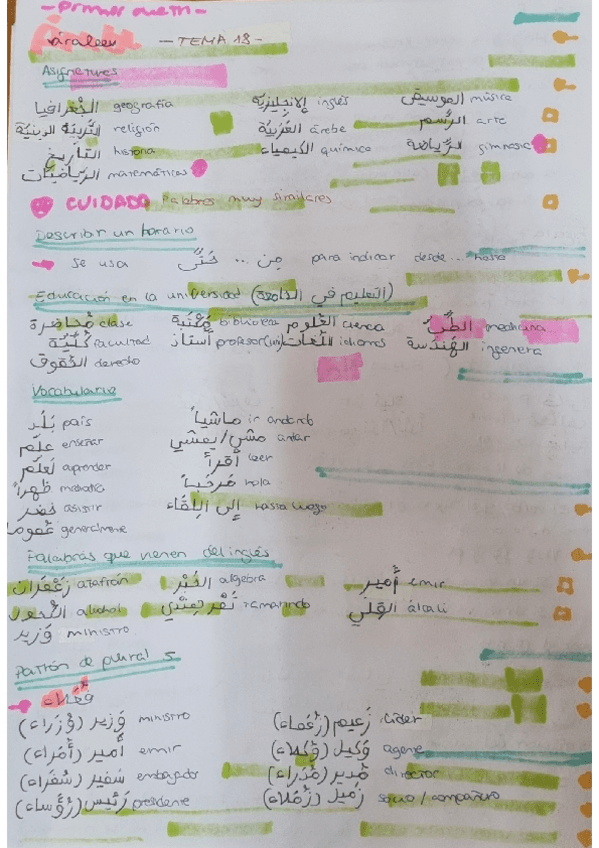 -primer cuatri-
árabe - TEMA 13 -
Asignaturas
الجُغرافيا geografía الإنجليزيّة inglés الموسيقى música
التَّربيَّة الدينيّة religión العَرَبيّة árabe الرَّسْم arte
التاريخ historia الكيمياء química الرِّياضة gimnasia
الرياضيّات matemáticas
CUIDADO Palabras muy similares
Describir un horario
Se usa مِن ... حَتَّى para indicar desde... hasta
Educación en la universidad (التعليم في الجامعة)
مُحاضَرة clase مَكْتَبة biblioteca العُلوم ciencia الطِّبّ medicina
كُلِّيّة facultad أستاذ profesor(uni) اللُّغات idiomas الهَنْدَسة ingeniería
الحُقوق derecho
Vocabulario
بَلَد país ماشياً ir andando
علّم enseñar مشى/يمشي andar
تَعلَّم aprender أقرأ leer
ظُهراً مَرحَباً hola
حضر asistir إلى اللِّقاء hasta luego
عُموما generalmente
Palabras que vienen del inglés
زَعْفَران azafrán الجَبْر algebra أَمير emir
الكُحول alcohol تَمْر هِنْدي tamarindo القِلي álcali
وَزير ministro
Patrón de plural 5
فُعَلاء
وَزير (وُزَراء) ministro زَعيم (زُعَماء) líder
أَمير (أُمَراء) emir وَكيل (وُكَلاء) agente
سَفير (سُفَراء) embajador مُدير (مُدَراء) director
رَئيس (رُؤَساء) presidente زَميل (زُمَلاء) socio / compañero